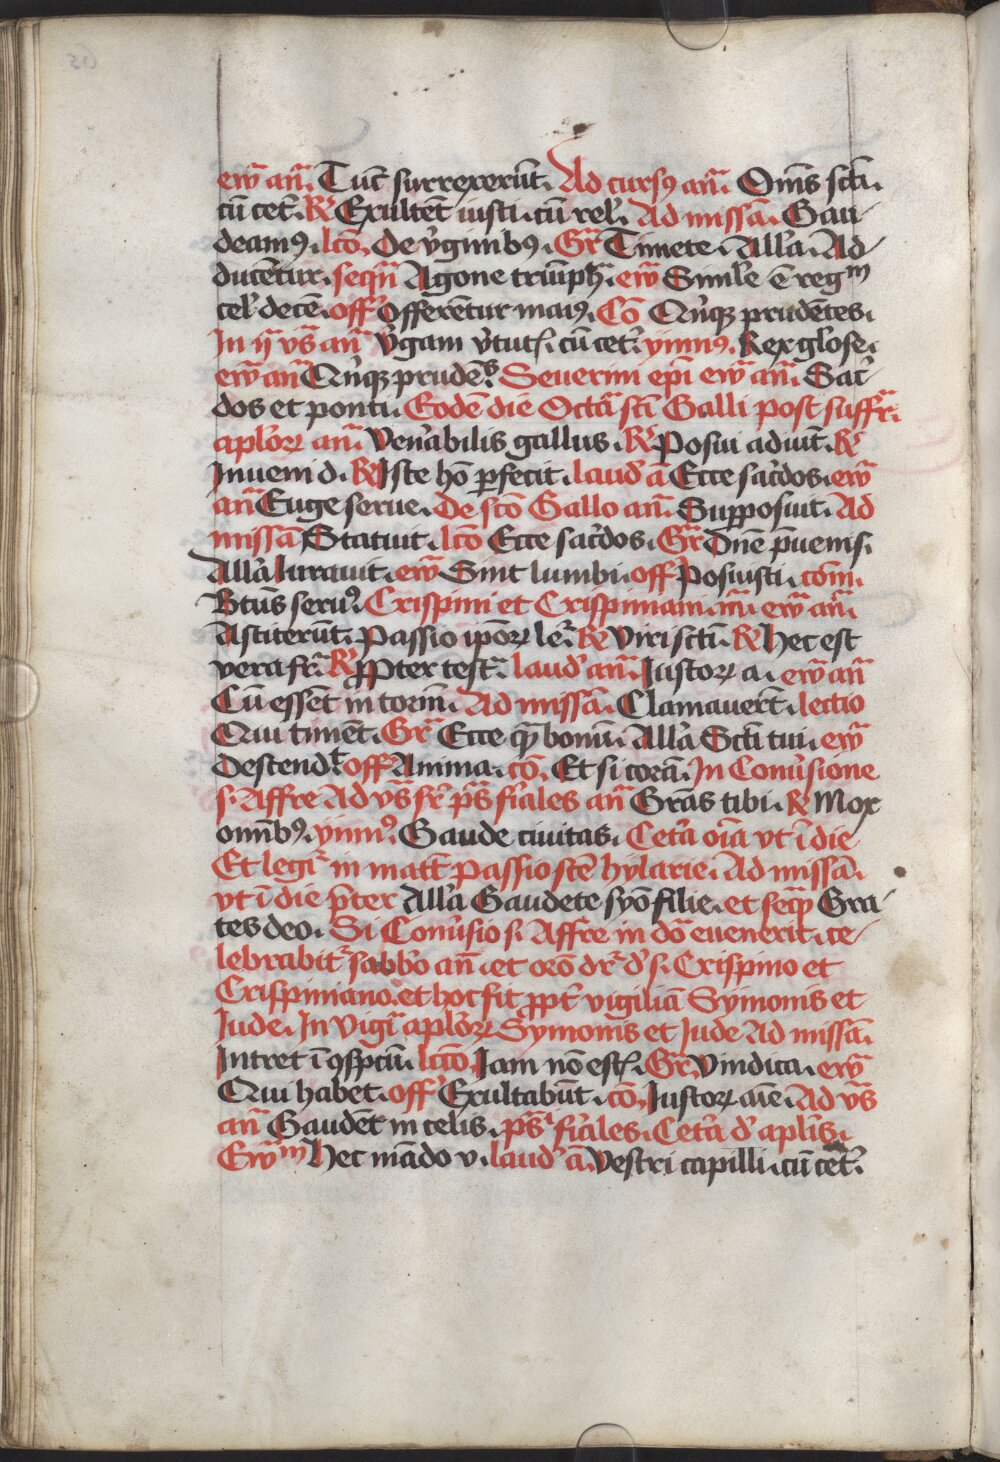 ew̄ an̄. Tūc surrexerūt. Ad cursꝯ an̄. Om̄s scī.
cū cet̄. ℟ Exultēt iusti. cū rel̛. Ad missā. Gau
deamꝯ. lcō. De v̛ginibꝯ. Gr̄ Timete. All̛a. Ad
ducētur. seqn̄ Agone triūph̄. ew̄ Simil̛e ē regᵐ
cel̛. decē. off̛ Offerētur maiꝯ. Cō Qn̛qꝫ prudētes.
In ij vs̄ an̄ v̛gam v̛tut̄. cū cet̄. ymnꝯ. Rex gl̛ose.
ew̄ an̄ Qn̛qꝫ prudēˢ. Seuerini ep̄i ew̄ an̄. Sac̛
dos et ponti. Eodē die Octā scī Galli post suffr̄.
apl̛oꝝ an̄. Ven̛abilis gallus. ℟ Posui adiut̄. ℟
Inueni d. ℟ Iste hō ꝑfecit. laud̛ ā Ecce sac̛dos. ew̄
an̄ Euge serue. De scō Gallo an̄. Supposuit. Ad
missā Statuit. lcō Ecce sac̛dos. Gr̄ Dn̄e p̄uenis.
All̛a Iurauit. ew̄ Sint lumbi. off̛ Posuisti. cōm.
Bt̄us seruꝯ. Crispini et Crispiniani. m̄. ew̄ an̄.
Astiterūt. Passio ip̄oꝝ le̛. ℟ Viri scī. ℟ Hec est
vera fr̄. ℟ Ꝓpter test̄. laud̛ an̄. Iustoꝝ a. ew̄ an̄
Cū essēt in torm̄. Ad missā. Clamauer̄t. lectio
Qui timēt. Gr̄ Ecce qꝫ bonū. All̛a Scī tui. ew̄
descendᵗ. off̛ Anima. cō. Et si corā. In Conưsione
s. Affre Ad vs̄ sr̄ ps̄ fr̛iales an̄ Grās tibi. ℟ Mox
omībꝯ. ymnꝯ. Gaude ciuitas. Cet̛a oīa vt ī die
Et legi̛ in matt̄ passio scē hylarie. Ad missā.
vt ī die p̄ter All̛a Gaudete syō filie. et seqn̄ Gra
tes deo. Si Conưsio s. Affre in dō euenerit. ce
lebrabit̛ sabb̛o an̄. et orō dr̄ d̛ s. Crispino et
Crispiniano. et hoc fit ꝓpt̄ vigiliā Symonis et
Iude. In Vigl̛ apl̛oꝝ Symonis et Iude Ad missā.
Intret ī ꝯspctū. lcō. Iam nō est̄. Gr̄ Vindica. ew̄
Qui habet. off̛ Exultabūt. cō. Iustoꝝ aīe. Ad vs̄
an̄ Gaudēt in celis. ps̄ fr̛iales. Cet̛a d̛ apl̛is.
Ew̄ᵐ Hec mādo v. laud̛ ā. Vestri capilli. cū cet̄.